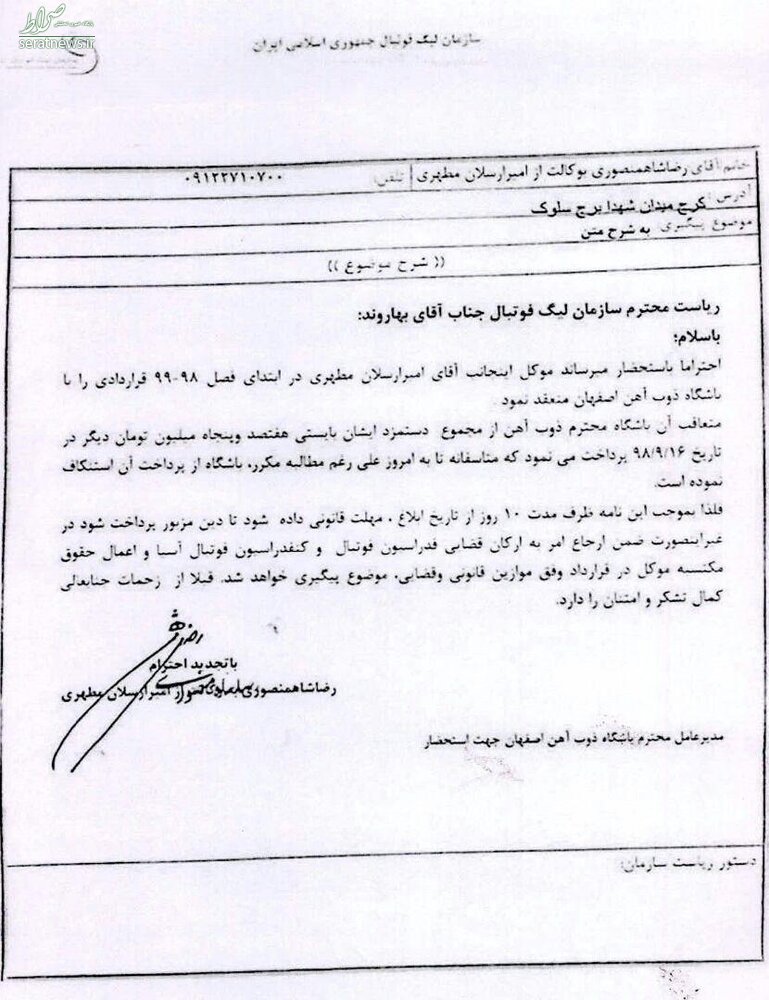 صراط
seratnews.ir
سازمان لیگ فوتبال جمهوری اسلامی ایران
خانم/آقای رضاشاهمنصوری بوکالت از امیرارسلان مطهری تلفن: ۰۹۱۲۲۷۱۰۷۰۰
آدرس: کرج میدان شهدا برج سلوک
موضوع پیگیری: به شرح متن
(( شرح موضوع ))
ریاست محترم سازمان لیگ فوتبال جناب آقای بهاروند:
باسلام؛
احتراما باستحضار میرساند موکل اینجانب آقای امیرارسلان مطهری در ابتدای فصل ۹۸-۹۹ قراردادی را با
باشگاه ذوب آهن اصفهان منعقد نمود.
متعاقب آن باشگاه محترم ذوب آهن از مجموع دستمزد ایشان بایستی هفتصد وپنجاه میلیون تومان دیگر در
تاریخ ۹۸/۹/۱۶ پرداخت می نمود که متاسفانه تا به امروز علی رغم مطالبه مکرر، باشگاه از پرداخت آن استنکاف
نموده است.
فلذا بموجب این نامه ظرف مدت ۱۰ روز از تاریخ ابلاغ ، مهلت قانونی داده شود تا دین مزبور پرداخت شود در
غیراینصورت ضمن ارجاع امر به ارکان قضایی فدراسیون فوتبال و کنفدراسیون فوتبال آسیا و اعمال حقوق
مکتسبه موکل در قرارداد وفق موازین قانونی وقضایی، موضوع پیگیری خواهد شد. قبلا از زحمات جنابعالی
کمال تشکر و امتنان را دارد.
باتجدید احترام
رضاشاهمنصوری از امیرارسلان مطهری
مدیرعامل محترم باشگاه ذوب آهن اصفهان جهت استحضار
دستور ریاست سازمان: